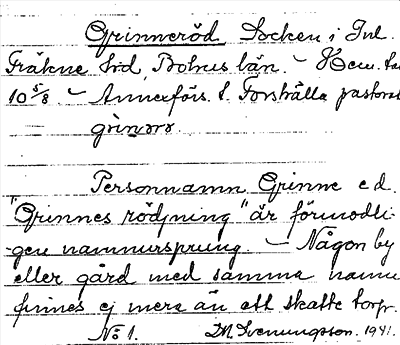 Grinneröd Socken i Inl.
Fräkne hrd, Bohus län. - Hem. ta
10 5/8 - Annexförs. t. Forshälla pastorat
grinərə
Personnamn Grinne e d.
"Grinnes rödjning" är förmodli-
gen namnursprung - Någon by
eller gård med samma namn
finnes ej mera än ett skatte torp.
No 1. D.M. Svenungsson. 1941.